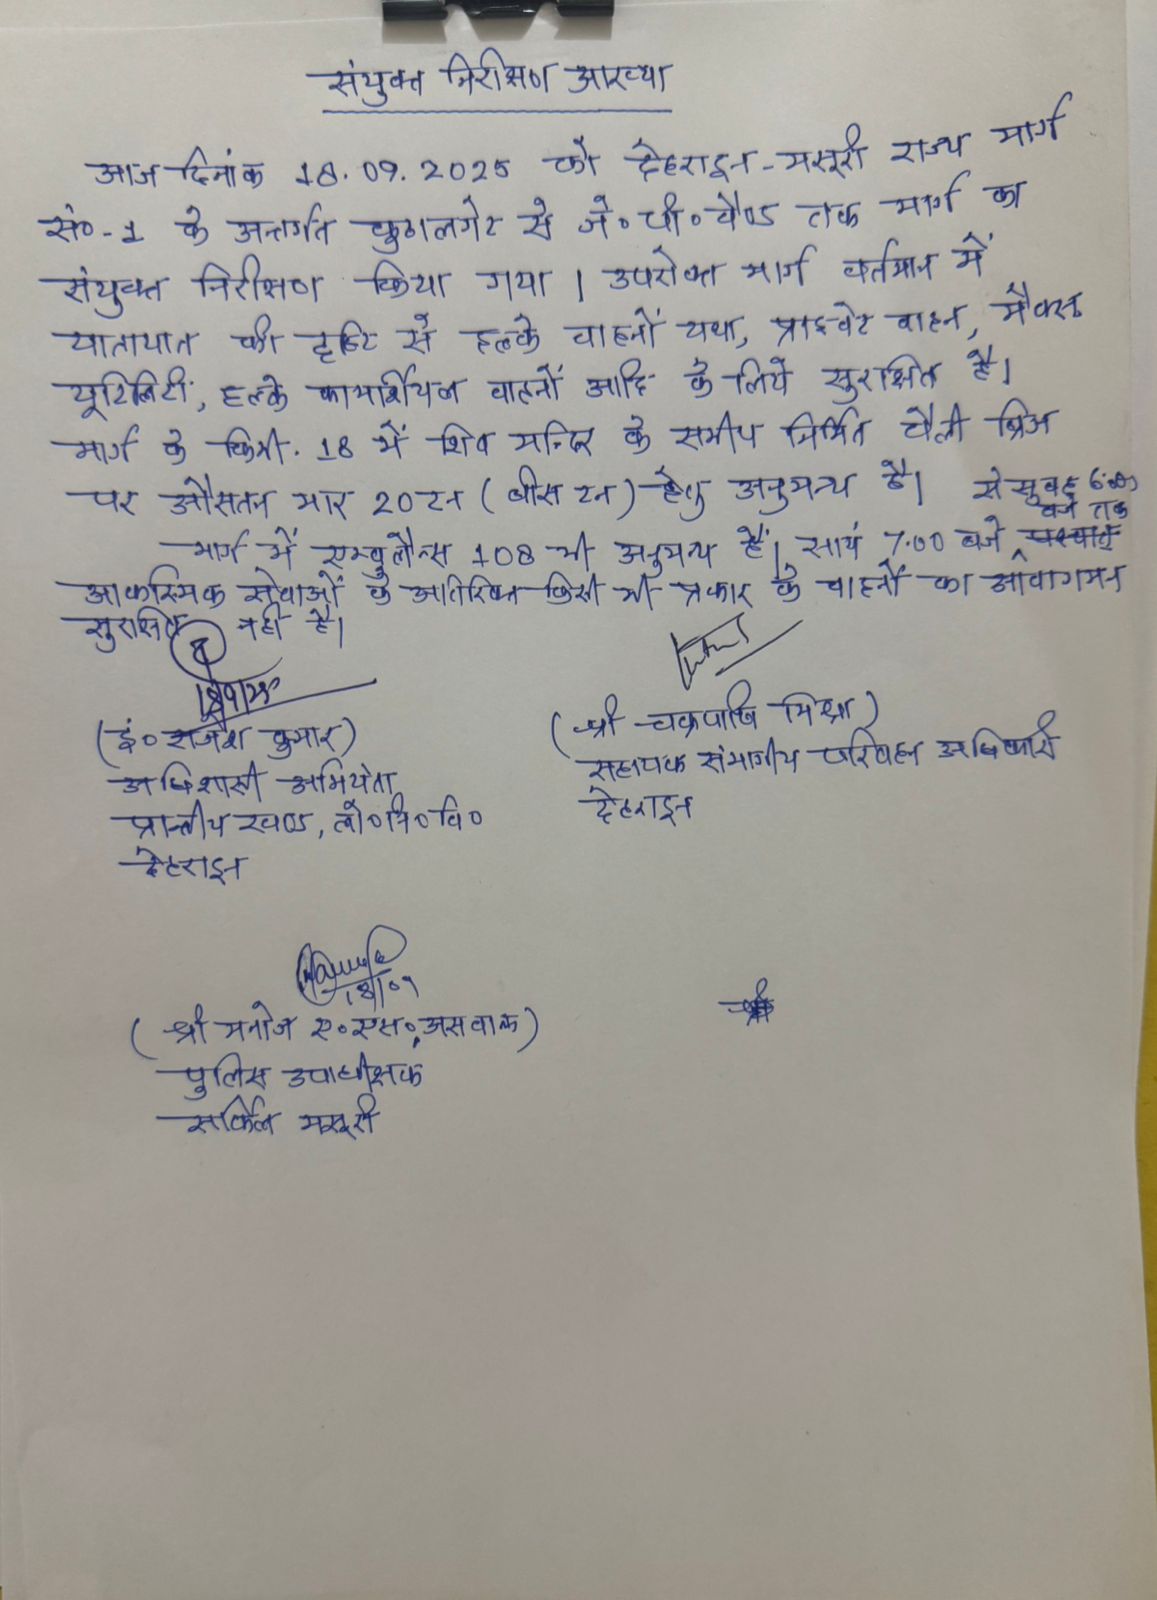 संयुक्त निरीक्षण आख्या
आज दिनांक 18.09.2025 को देहरादून-मसूरी राज्य मार्ग
सं०-1 के अन्तर्गत कुठालगेट से जे०पी०बैण्ड तक मार्ग का
संयुक्त निरीक्षण किया गया। उपरोक्त मार्ग वर्तमान में
यातायात की दृष्टि से हल्के वाहनों यथा, प्राइवेट वाहन, मैक्स
यूटिलिटी, हल्के कामर्शियल वाहनों आदि के लिये सुरक्षित है।
मार्ग के किमी. 18 में शिव मन्दिर के समीप निर्मित वैली ब्रिज
पर औसतन भार 20टन (बीस टन) हेतु अनुमन्य है।
से सुबह 6:00
बजे तक
मार्ग में एम्बुलैन्स 108 भी अनुमन्य हैं। सायं 7.00 बजे पश्चात
आकस्मिक सेवाओं के अतिरिक्त किसी भी प्रकार के वाहनों का आवागमन
सुरक्षित नहीं है।
(इं० राजेश कुमार)
अधिशासी अभियंता
प्रान्तीय खण्ड, लो०नि०वि०
देहरादून
(श्री चक्रपाणि मिश्रा)
सहायक संभागीय परिवहन अधिकारी
देहरादून
18/09
(श्री मनोज ए०एस० असवाल)
पुलिस उपाधीक्षक
सर्किल मसूरी